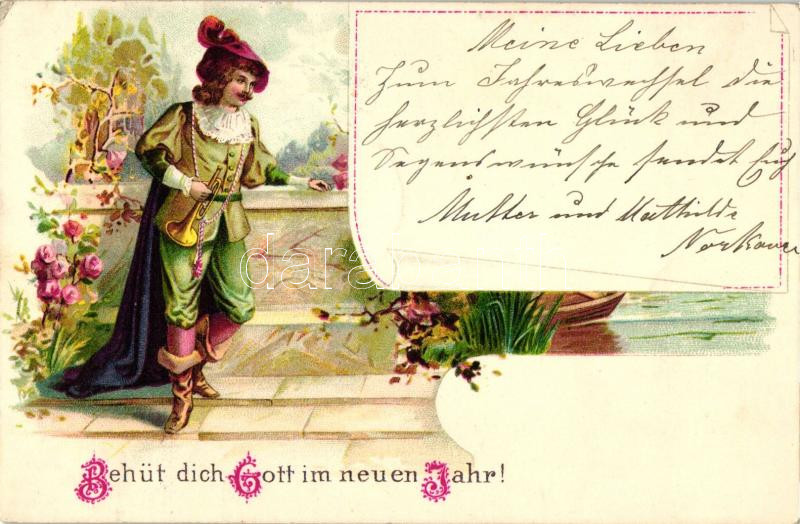 Meine Lieben
Zum Jahreswechsel die
herzlichsten Glück und
Segenswünsche sendet Euch
Mutter und Mathilde
darabanth
Behüt dich Gott im neuen Jahr!